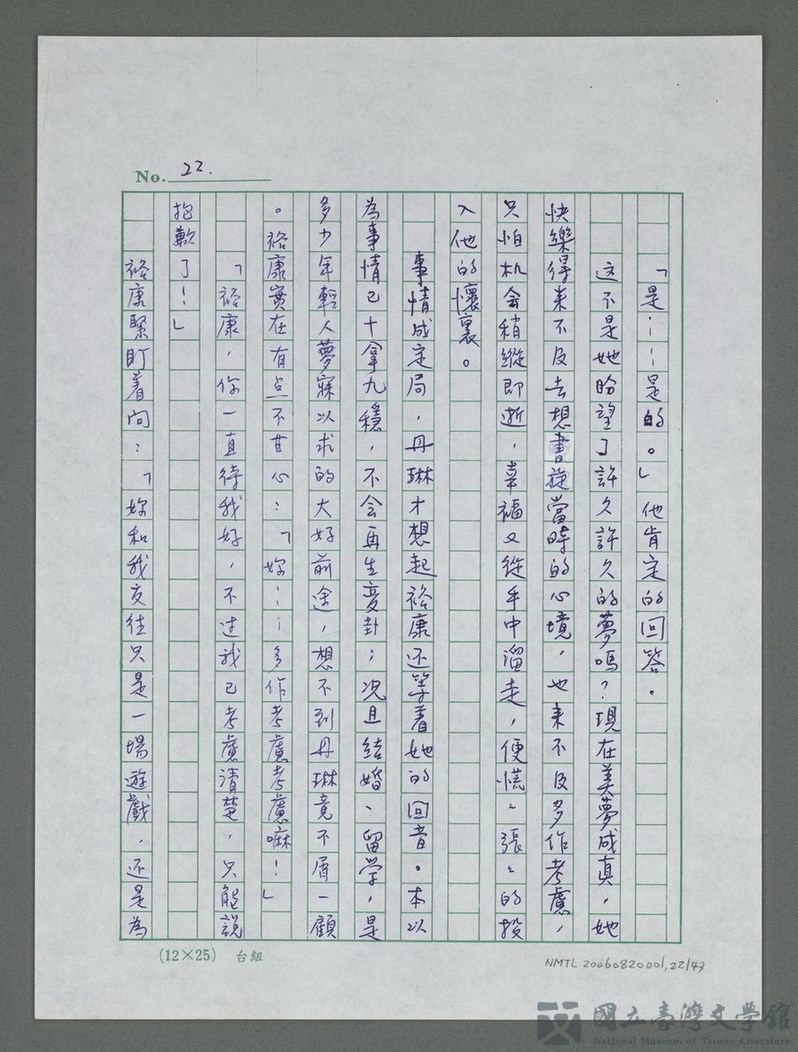 No. 22.
「是……是的。」他肯定的回答。
這不是她盼望了許久許久的夢嗎？現在美夢成真，她
快樂得来不及去想書旋當時的心境，也来不及多作考慮，
只怕机会稍縱即逝，幸福又從手中溜走，便慌〻張〻的投
入他的懷裏。
事情成定局，丹琳才想起裕康还等着她的回音。本以
為事情已十拿九穩，不会再生変卦；况且結婚、留学，是
多少年輕人夢寐以求的大好前途，想不到丹琳竟不屑一顧
。裕康實在有点不甘心：「妳……多作考慮考慮嘛！」
「裕康，你一直待我好，不过我已考慮清楚，只能說
抱歉了！」
裕康緊盯着问：「妳和我交往只是一場遊戲，还是為
(12×25) 台組
NMTL 20060820001,22/43
國立臺灣文學館
National Museum of Taiwan Literature